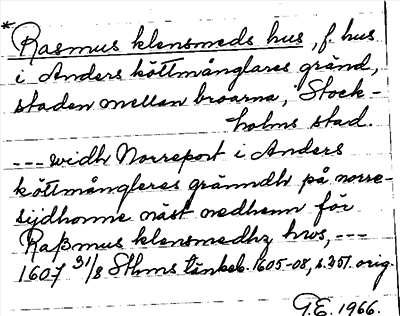 * Rasmus klensmeds hus, f. hus
i Anders köttmånglares gränd,
staden mellan broarna, Stock-
holms stad.
--- widh Norreport i Anders
köttmångleres gränndh på norre-
sijdhonne näst nedhenn för
Raßmus klensmedhz hws, ---
1607 31/8 Sthms tänkeb. 1605-08, s. 351. orig.
G.E. 1966.